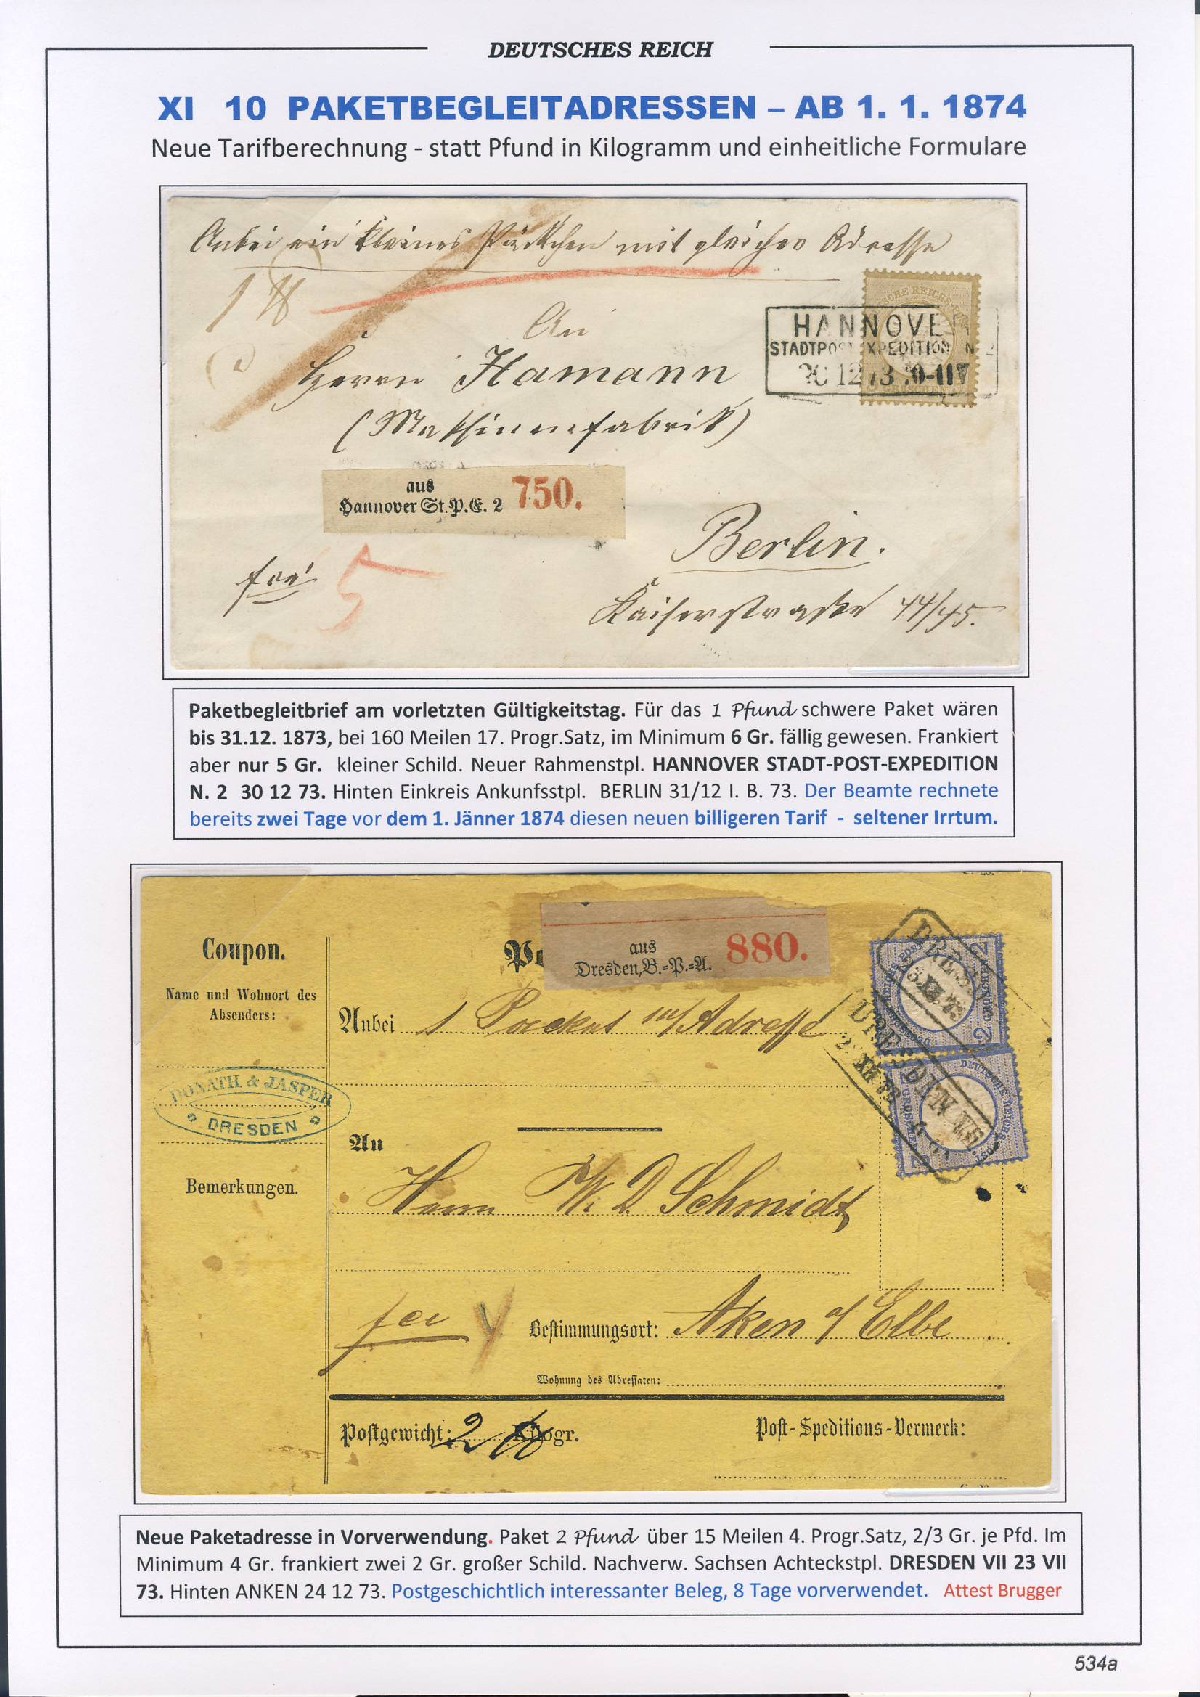 DEUTSCHES REICH
XI 10 PAKETBEGLEITADRESSEN – AB 1. 1. 1874
Neue Tarifberechnung - statt Pfund in Kilogramm und einheitliche Formulare
Anbei ein kleines Päckchen mit gleicher Adresse
An
Herrn Hamann
(Maschinenfabrik)
HANNOVE
STADTPOST EXPEDITION N. 2
aus
Hannover St.P.E. 2 750.
Berlin.
frei 5
Kaiserstraße 44/45.
Paketbegleitbrief am vorletzten Gültigkeitstag. Für das 1 Pfund schwere Paket wären
bis 31.12. 1873, bei 160 Meilen 17. Progr.Satz, im Minimum 6 Gr. fällig gewesen. Frankiert
aber nur 5 Gr. kleiner Schild. Neuer Rahmenstpl. HANNOVER STADT-POST-EXPEDITION
N. 2 30 12 73. Hinten Einkreis Ankunfsstpl. BERLIN 31/12 I. B. 73. Der Beamte rechnete
bereits zwei Tage vor dem 1. Jänner 1874 diesen neuen billigeren Tarif - seltener Irrtum.
Coupon.
aus
Dresden, B.-P.-A. 880.
Name und Wohnort des
Absenders:
Anbei 1 Packet m/Adresse
DONATH & JASPER
DRESDEN
An
Bemerkungen.
Herrn W. D Schmidt
frei
Bestimmungsort: Aken a/ Elbe
Wohnung des Adressaten:
Postgewicht: 2 Kilogr.
Post-Speditions-Vermerk:
Neue Paketadresse in Vorverwendung. Paket 2 Pfund über 15 Meilen 4. Progr.Satz, 2/3 Gr. je Pfd. Im
Minimum 4 Gr. frankiert zwei 2 Gr. großer Schild. Nachverw. Sachsen Achteckstpl. DRESDEN VII 23 VII
73. Hinten ANKEN 24 12 73. Postgeschichtlich interessanter Beleg, 8 Tage vorverwendet. Attest Brugger
534a